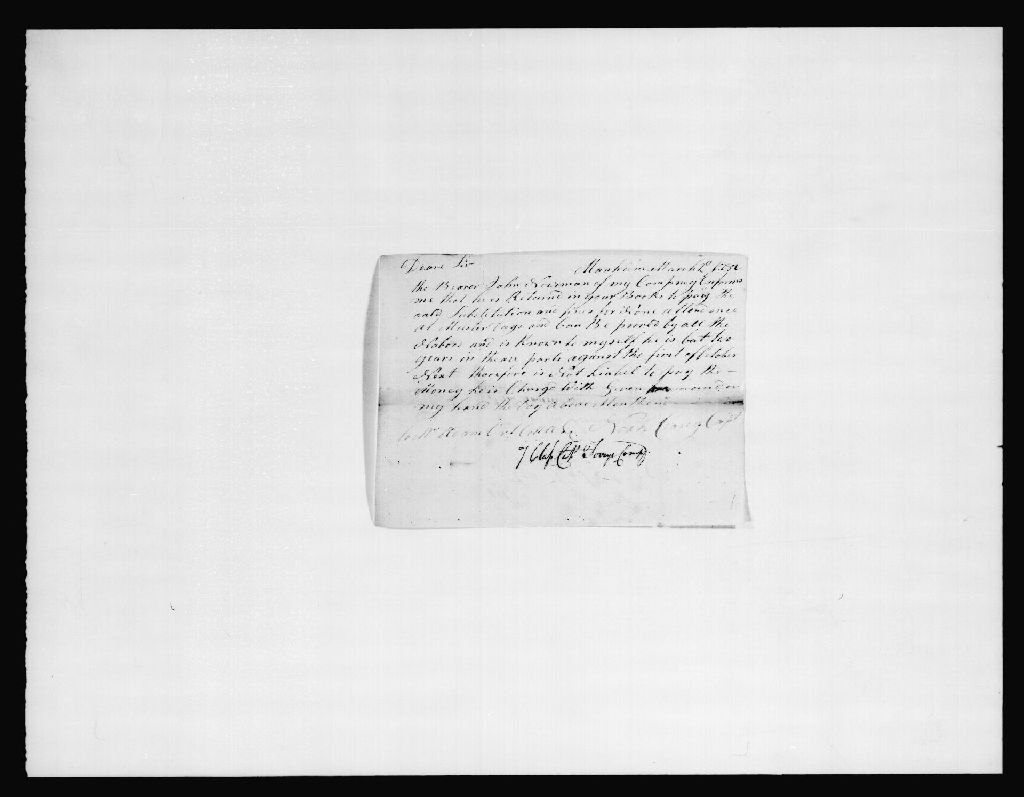 Deare Sir
Manheim March
the Bearer John Newman of my Company Informs
me that he is Returnd in your Books to pay the
and Substitution and fines for None attendence
at Muster Days and Can Be proved by all the
Nabors and is Known to myself he is but two
years in these parts against the first of October
Next therefore is Not Liabel to pay the
Money he is Charge With Given under
my hand the Day above Mentiened
Adam Noah Capt
7 Class Compy